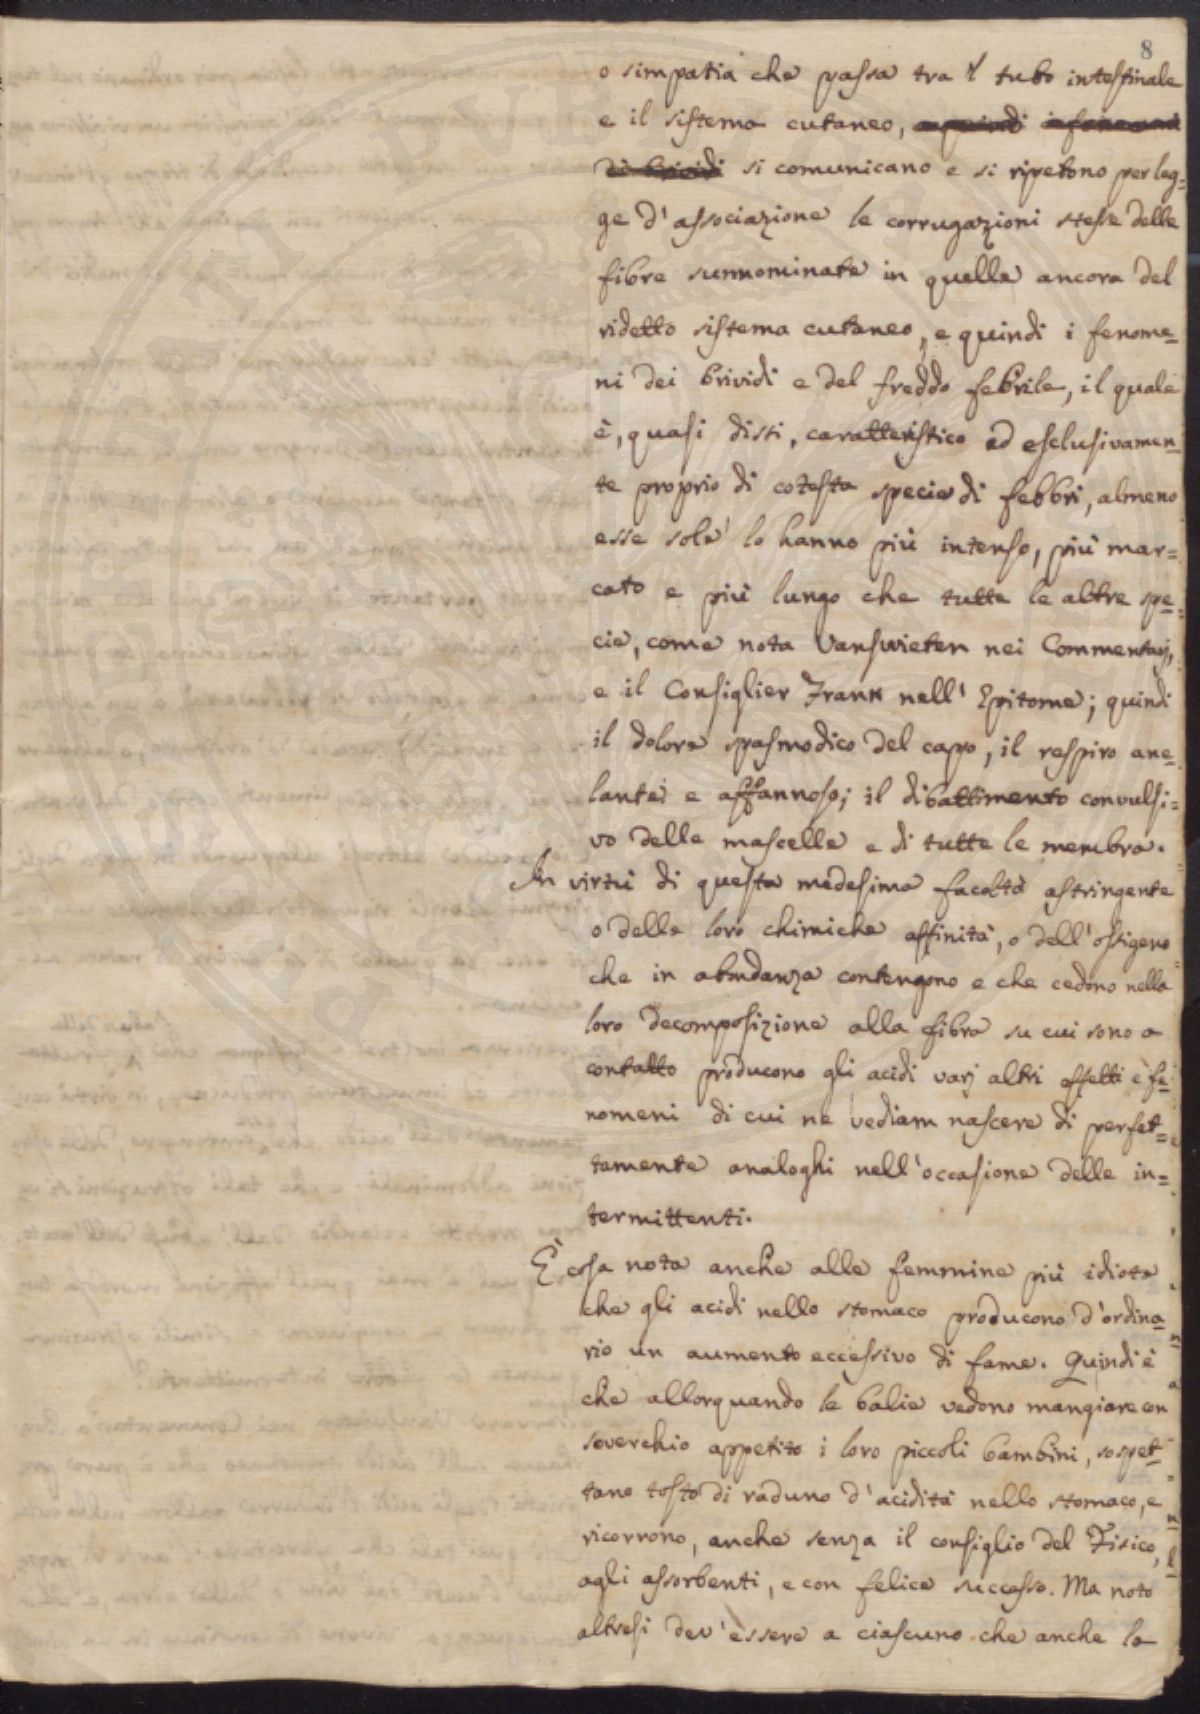 8
o simpatia che passa tra 'l tubo intestinale
e il sistema cutaneo,
si comunicano e si ripetono per leg=
ge d'associazione le corrugazioni stesse delle
fibre sunnominate in quelle ancora del
ridetto sistema cutaneo, e quindi i fenome=
ni dei brividi e del freddo febrile, il quale
è, quasi dissi, caratteristico ed esclusivamen=
te proprio di cotesta specie di febbri, almeno
esse sole lo hanno più intenso, più mar=
cato e più lungo che tutte le altre spe=
cie, come nota Vanswieten nei Commentarj,
e il Consiglier Frank nell'Epitome; quindi
il dolore spasmodico del capo, il respiro ane=
lante e affannoso; il dibattimento convulsi=
vo delle mascelle e di tutte le membra.
In virtù di questa medesima facoltà astringente
o delle loro chimiche affinità, o dell'ossigeno
che in abondanza contengono e che cedono nella
loro decomposizione alla fibra su cui sono a
contatto producono gli acidi varj altri effetti e fe=
nomeni di cui ne vediam nascere di perfet=
tamente analoghi nell'occasione delle in=
termittenti.
È cosa nota anche alle femmine più idiote
che gli acidi nello stomaco producono d'ordina=
rio un aumento eccessivo di fame. Quindi è
che allorquando le balie vedono mangiare con
soverchio appetito i loro piccoli bambini, sospet=
tano tosto di raduno d'acidità nello stomaco, e
ricorrono, anche senza il consiglio del Fisico,
agli assorbenti, e con felice successo. Ma noto
altresì dev'essere a ciascuno che anche la